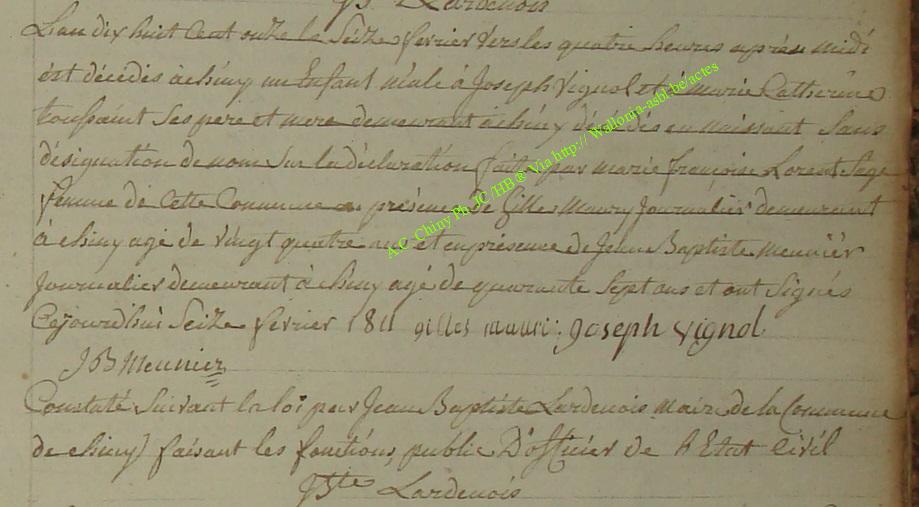 JB. Lardenois
L'an dix huit Cent onze le Seize fevrier vers les quatre heures après midi
est décedés à chiny un Enfant mâle à Joseph Vignol et à marie Catherine
toussaint Ses pere et mere demeurant à chiny décedés en naissant Sans
désignation de nom Sur la déclaration faite par marie françoise Lorent Sage
femme de Cette Commune en présence de Gilles Maury Journalier demeurant
à chiny agé de vingt quatre ans et en présence de Jean Baptiste meunier
journalier demeurant à chiny agé de quarante Sept ans et ont Signés
Cejourdhui Seize fevrier 1811 gilles mauri joseph vignol
JB Meunier
Constaté Suivant la loi par Jean Baptiste Lardenois maire de la Commune
de chiny faisant les fonctions public D'officier de l'Etat Civil
JBte Lardenois
A.C. Chiny Ph JC/HB ® Via http:// Wallonia-asbl.be/actes